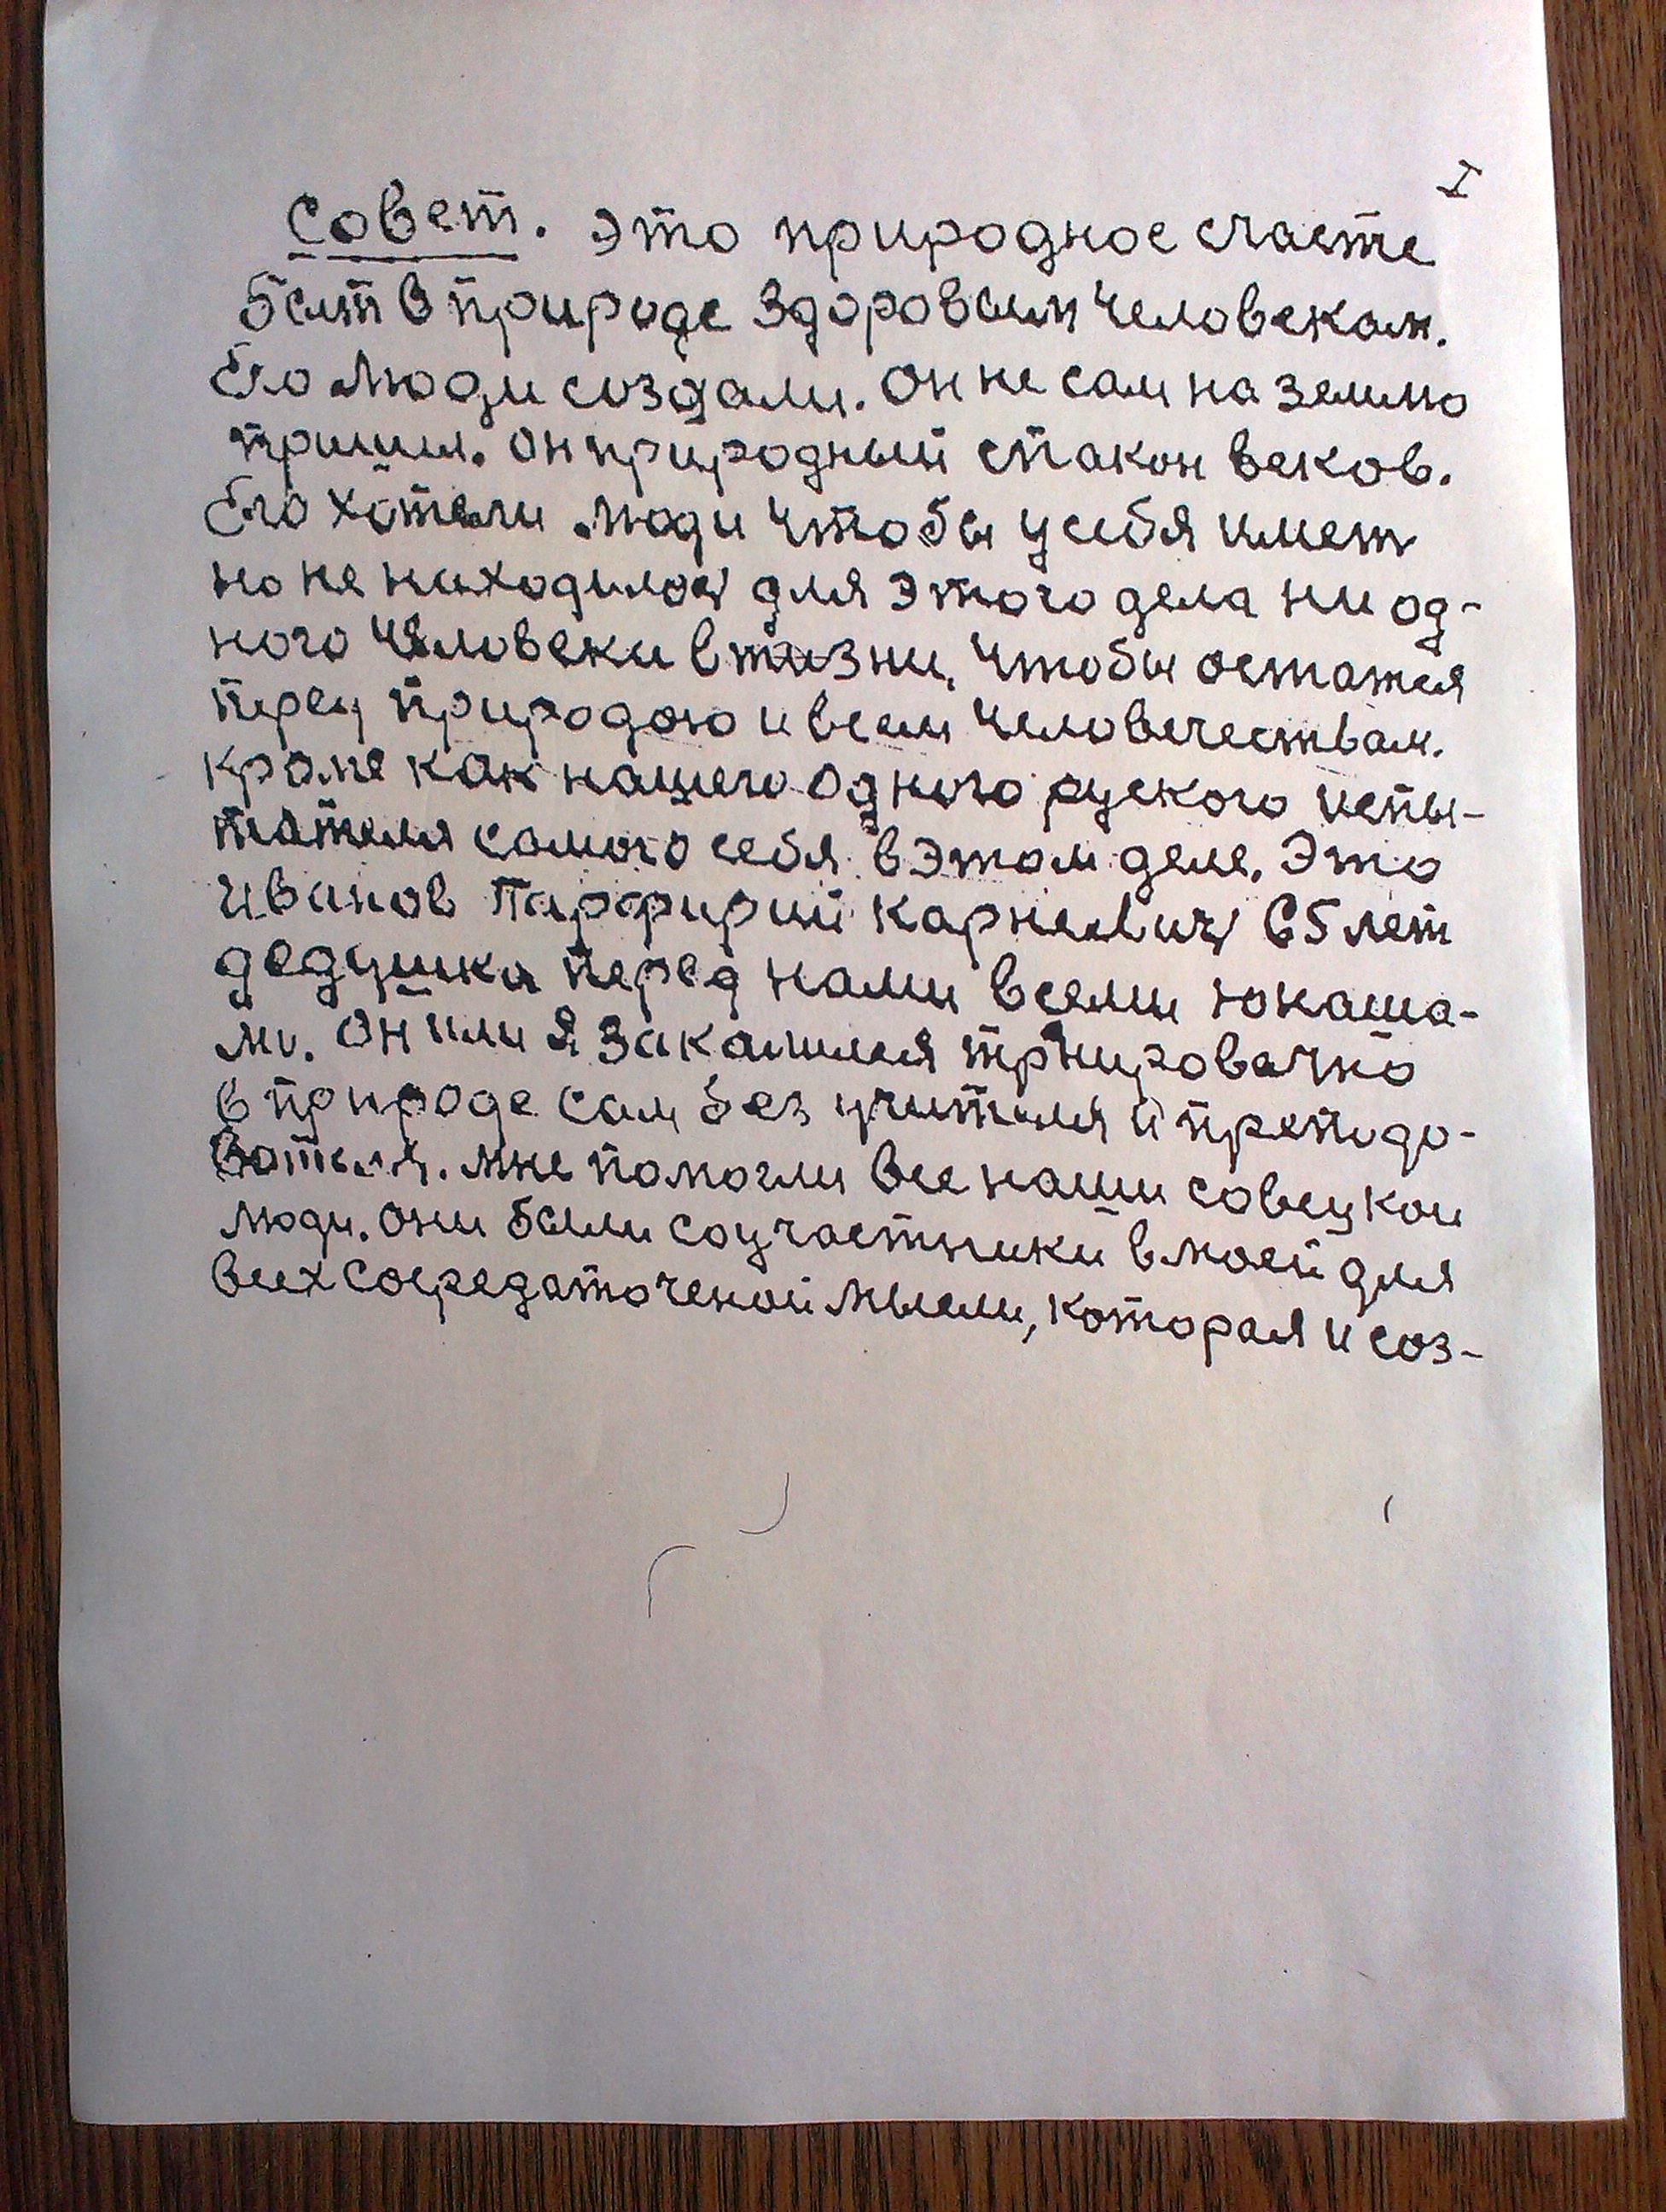 I
Совет. Это природное счасте
быт в природе здоровым человекам.
Его люди создали. Он не сам на землю
пришил. Он природный спакон веков.
Его хотели люди чтобы у себя имет
но не находилос для этого дела ни од-
ного человеки в жизни, чтобы остатся
перед природою и всем человечествам.
кроме как нашего одного руского испы-
тателя самого себя в этом деле. Это
Иванов Парфирий Карнеевич 65 лет
дедушка перед нами всеми юнаша-
ми. Он или я закалился трнировачно
в природе сам без учителя и преподо-
вателя. мне помогли все наши совецкои
люди. они были соучастники в моей для
всех сосредаточеной мысли, которая и соз-